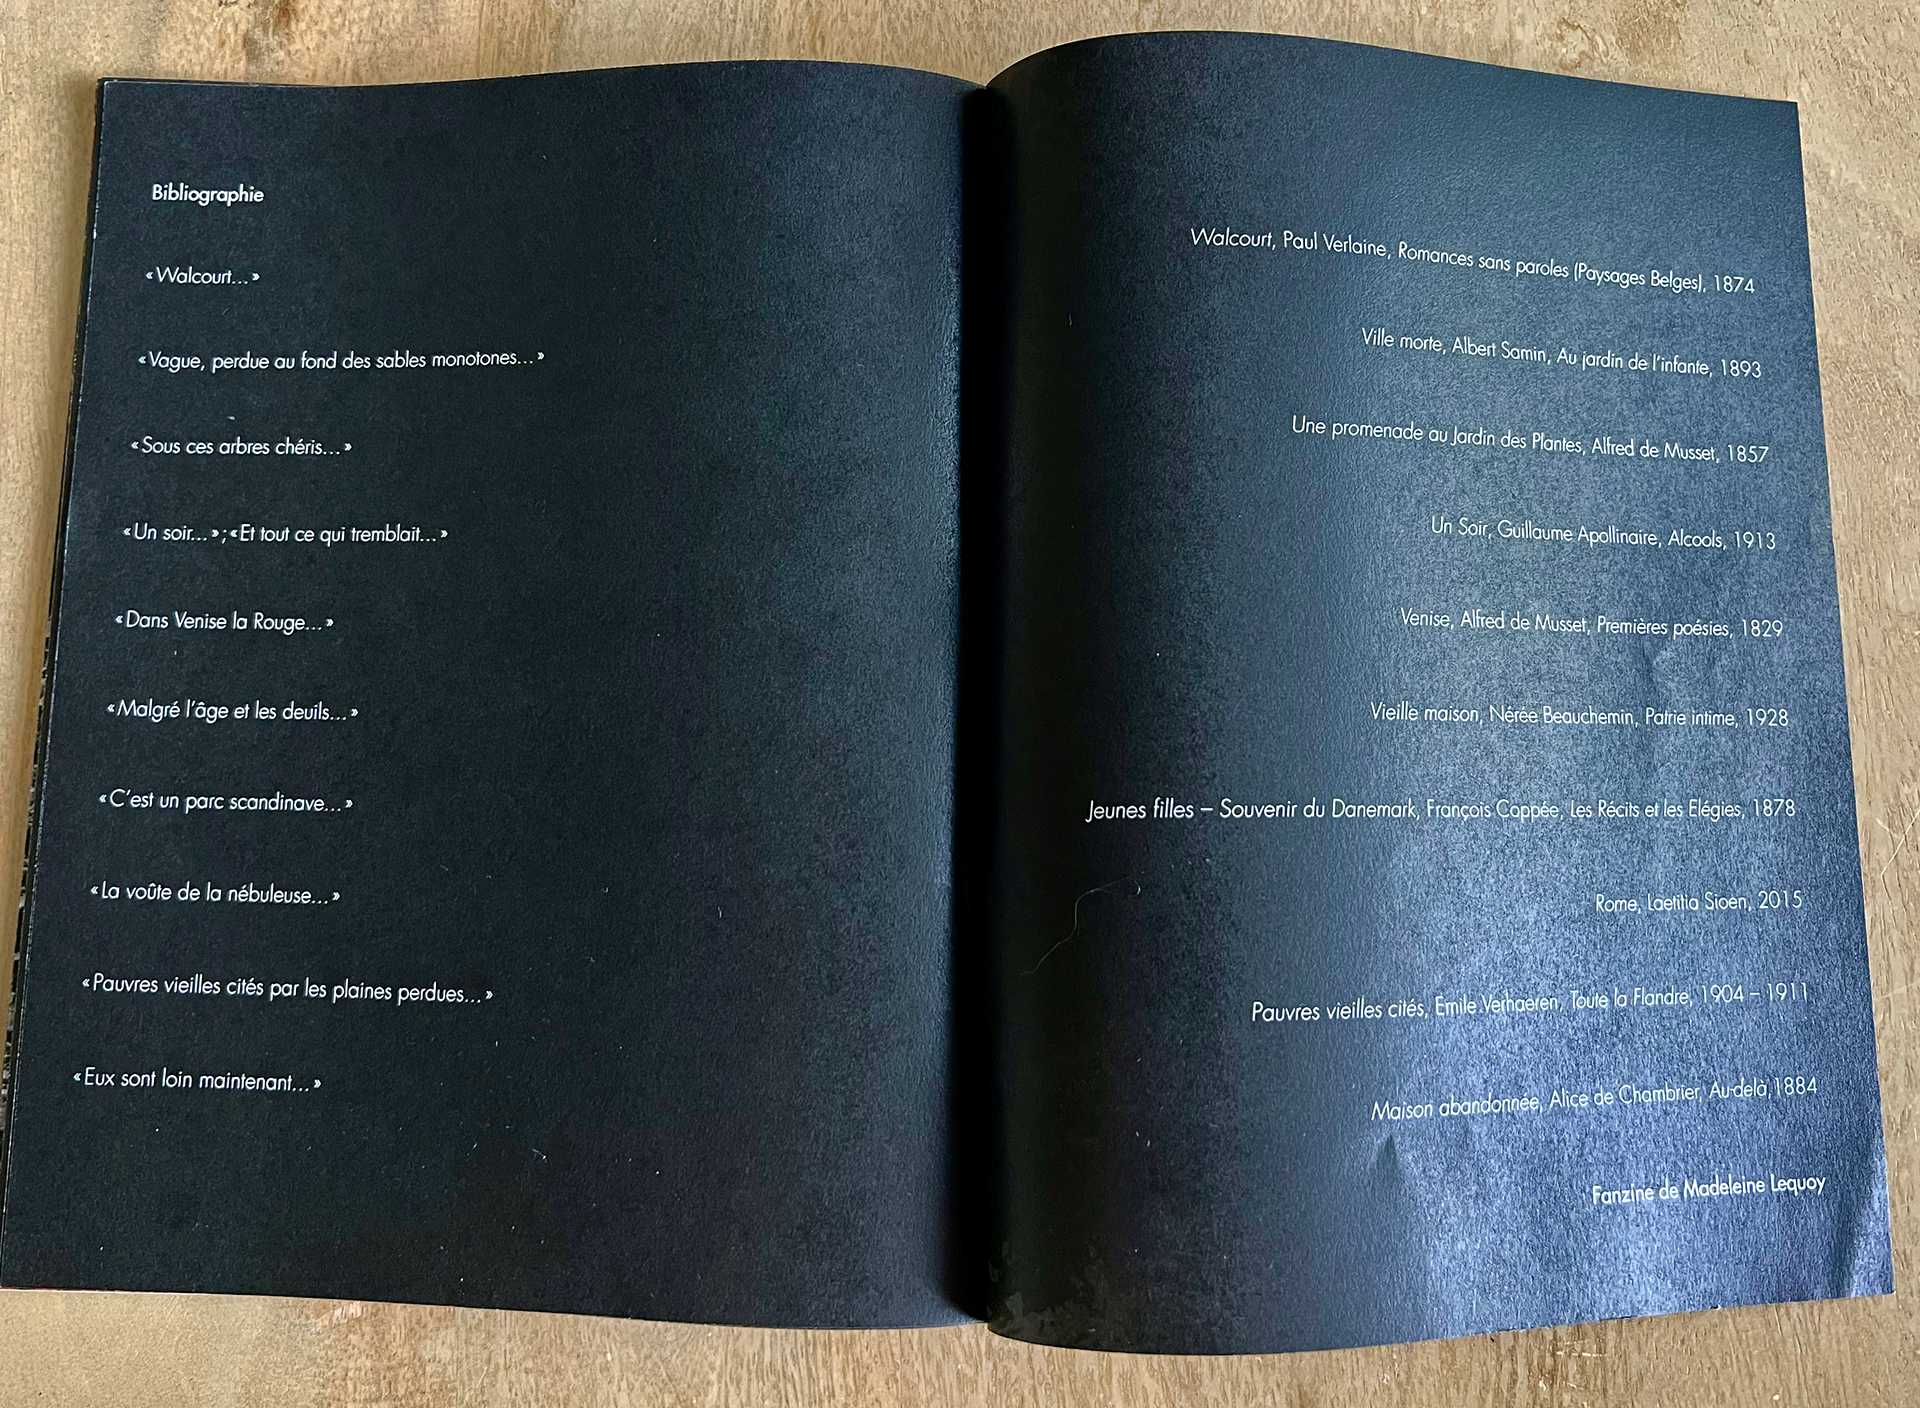 Bibliographie
« Walcourt... »
« Vague, perdue au fond des sables monotones... »
« Sous ces arbres chéris... »
« Un soir... » ; « Et tout ce qui tremblait... »
« Dans Venise la Rouge... »
« Malgré l'âge et les deuils... »
« C'est un parc scandinave... »
« La voûte de la nébuleuse... »
« Pauvres vieilles cités par les plaines perdues... »
« Eux sont loin maintenant... »
Walcourt, Paul Verlaine, Romances sans paroles (Paysages Belges), 1874
Ville morte, Albert Samin, Au jardin de l'infante, 1893
Une promenade au Jardin des Plantes, Alfred de Musset, 1857
Un Soir, Guillaume Apollinaire, Alcools, 1913
Venise, Alfred de Musset, Premières poésies, 1829
Vieille maison, Nérée Beauchemin, Patrie intime, 1928
Jeunes filles – Souvenir du Danemark, François Coppée, Les Récits et les Elégies, 1878
Rome, Laetitia Sioen, 2015
Pauvres vieilles cités, Emile Verhaeren, Toute la Flandre, 1904 – 1911
Maison abandonnée, Alice de Chambrier, Au-delà,1884
Fanzine de Madeleine Lequoy